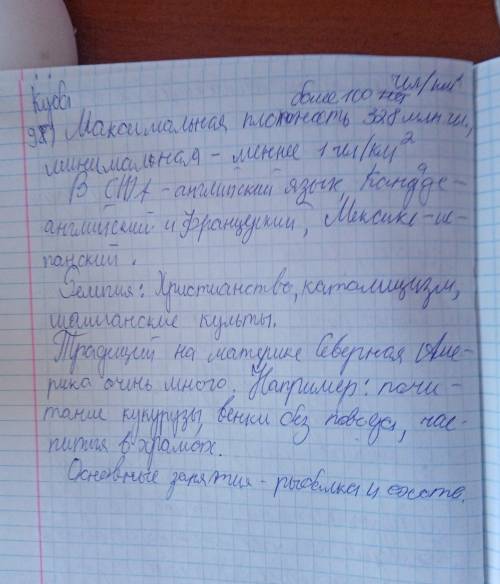 Кубы
более 100 чел/км²
98) Максимальная плотность 328 млн чел,
минимальная - менне 1 чел/км²
В США - английский язык, Канаде -
английский и Французкий, Мексике - ис-
панский.
Религия: Христианство, католицизм,
шаманские культы.
Традиций на материке Северная Аме-
рика очень много. Например: почи-
тание кукурузы, венки без повода, чае-
пития в храмах.
Основные занятия - рыбалка и охота.